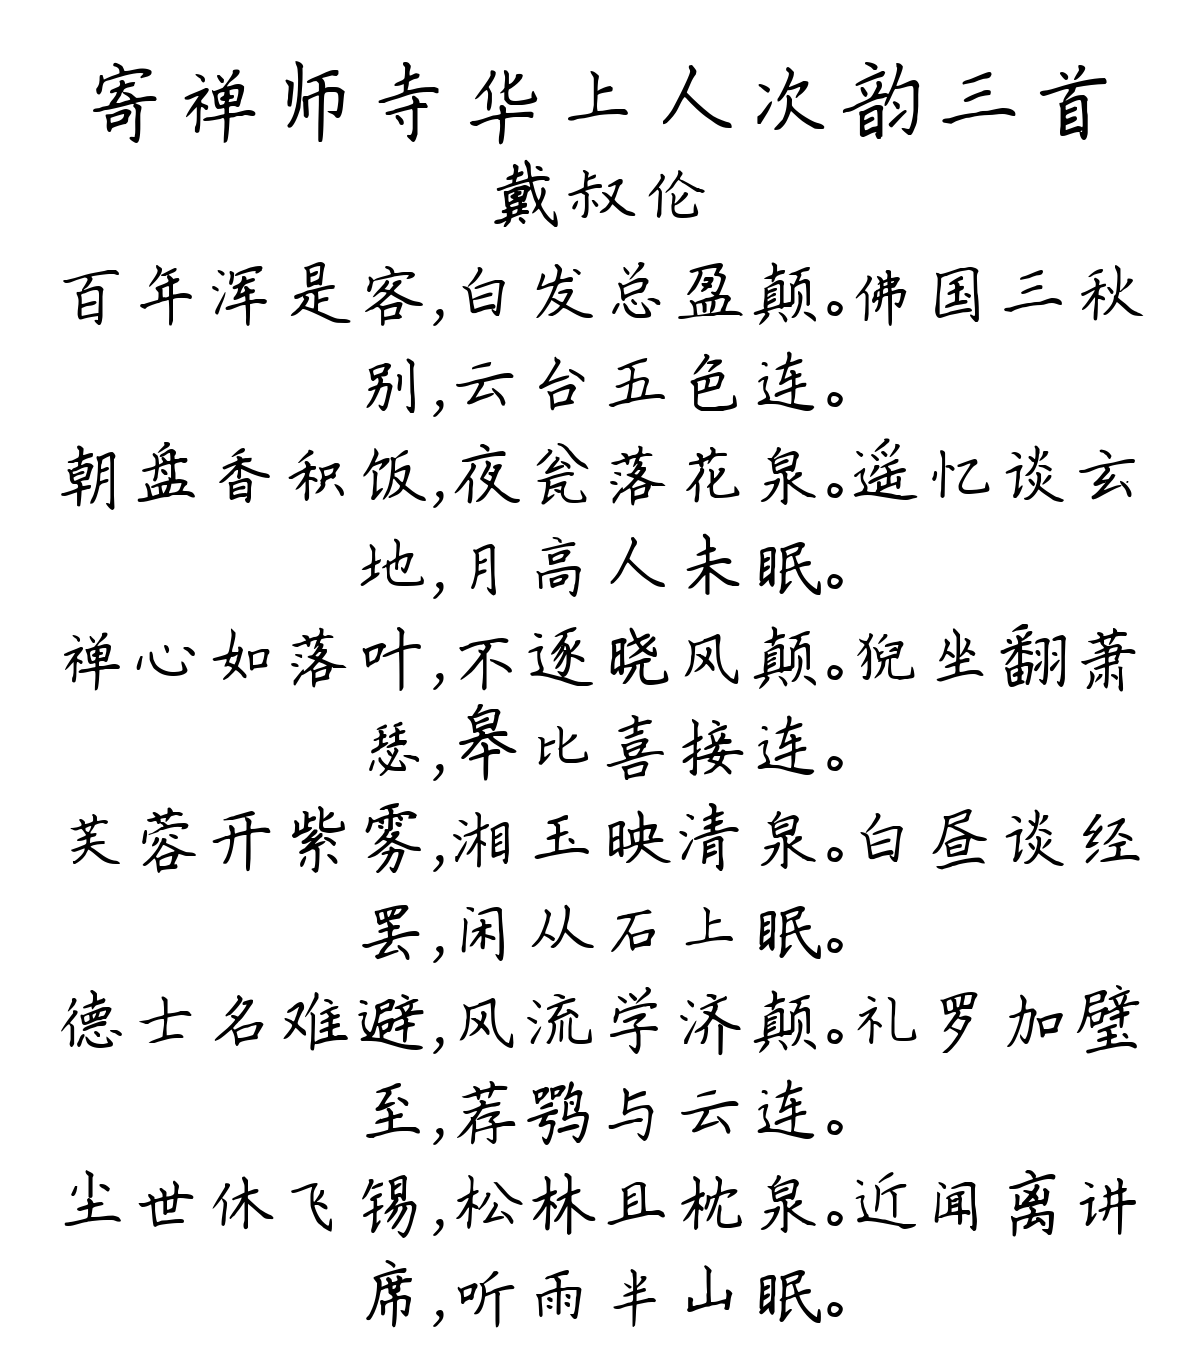 寄禅师寺华上人次韵三首
戴叔伦
百年浑是客,白发总盈颠。佛国三秋
别,云台五色连。
朝盘香积饭,夜瓮落花泉。遥忆谈玄
地,月高人未眠。
禅心如落叶,不逐晓风颠。猊坐翻萧
瑟,皋比喜接连。
芙蓉开紫雾,湘玉映清泉。白昼谈经
罢,闲从石上眠。
德士名难避,风流学济颠。礼罗加璧
至,荐鹗与云连。
尘世休飞锡,松林且枕泉。近闻离讲
席,听雨半山眠。